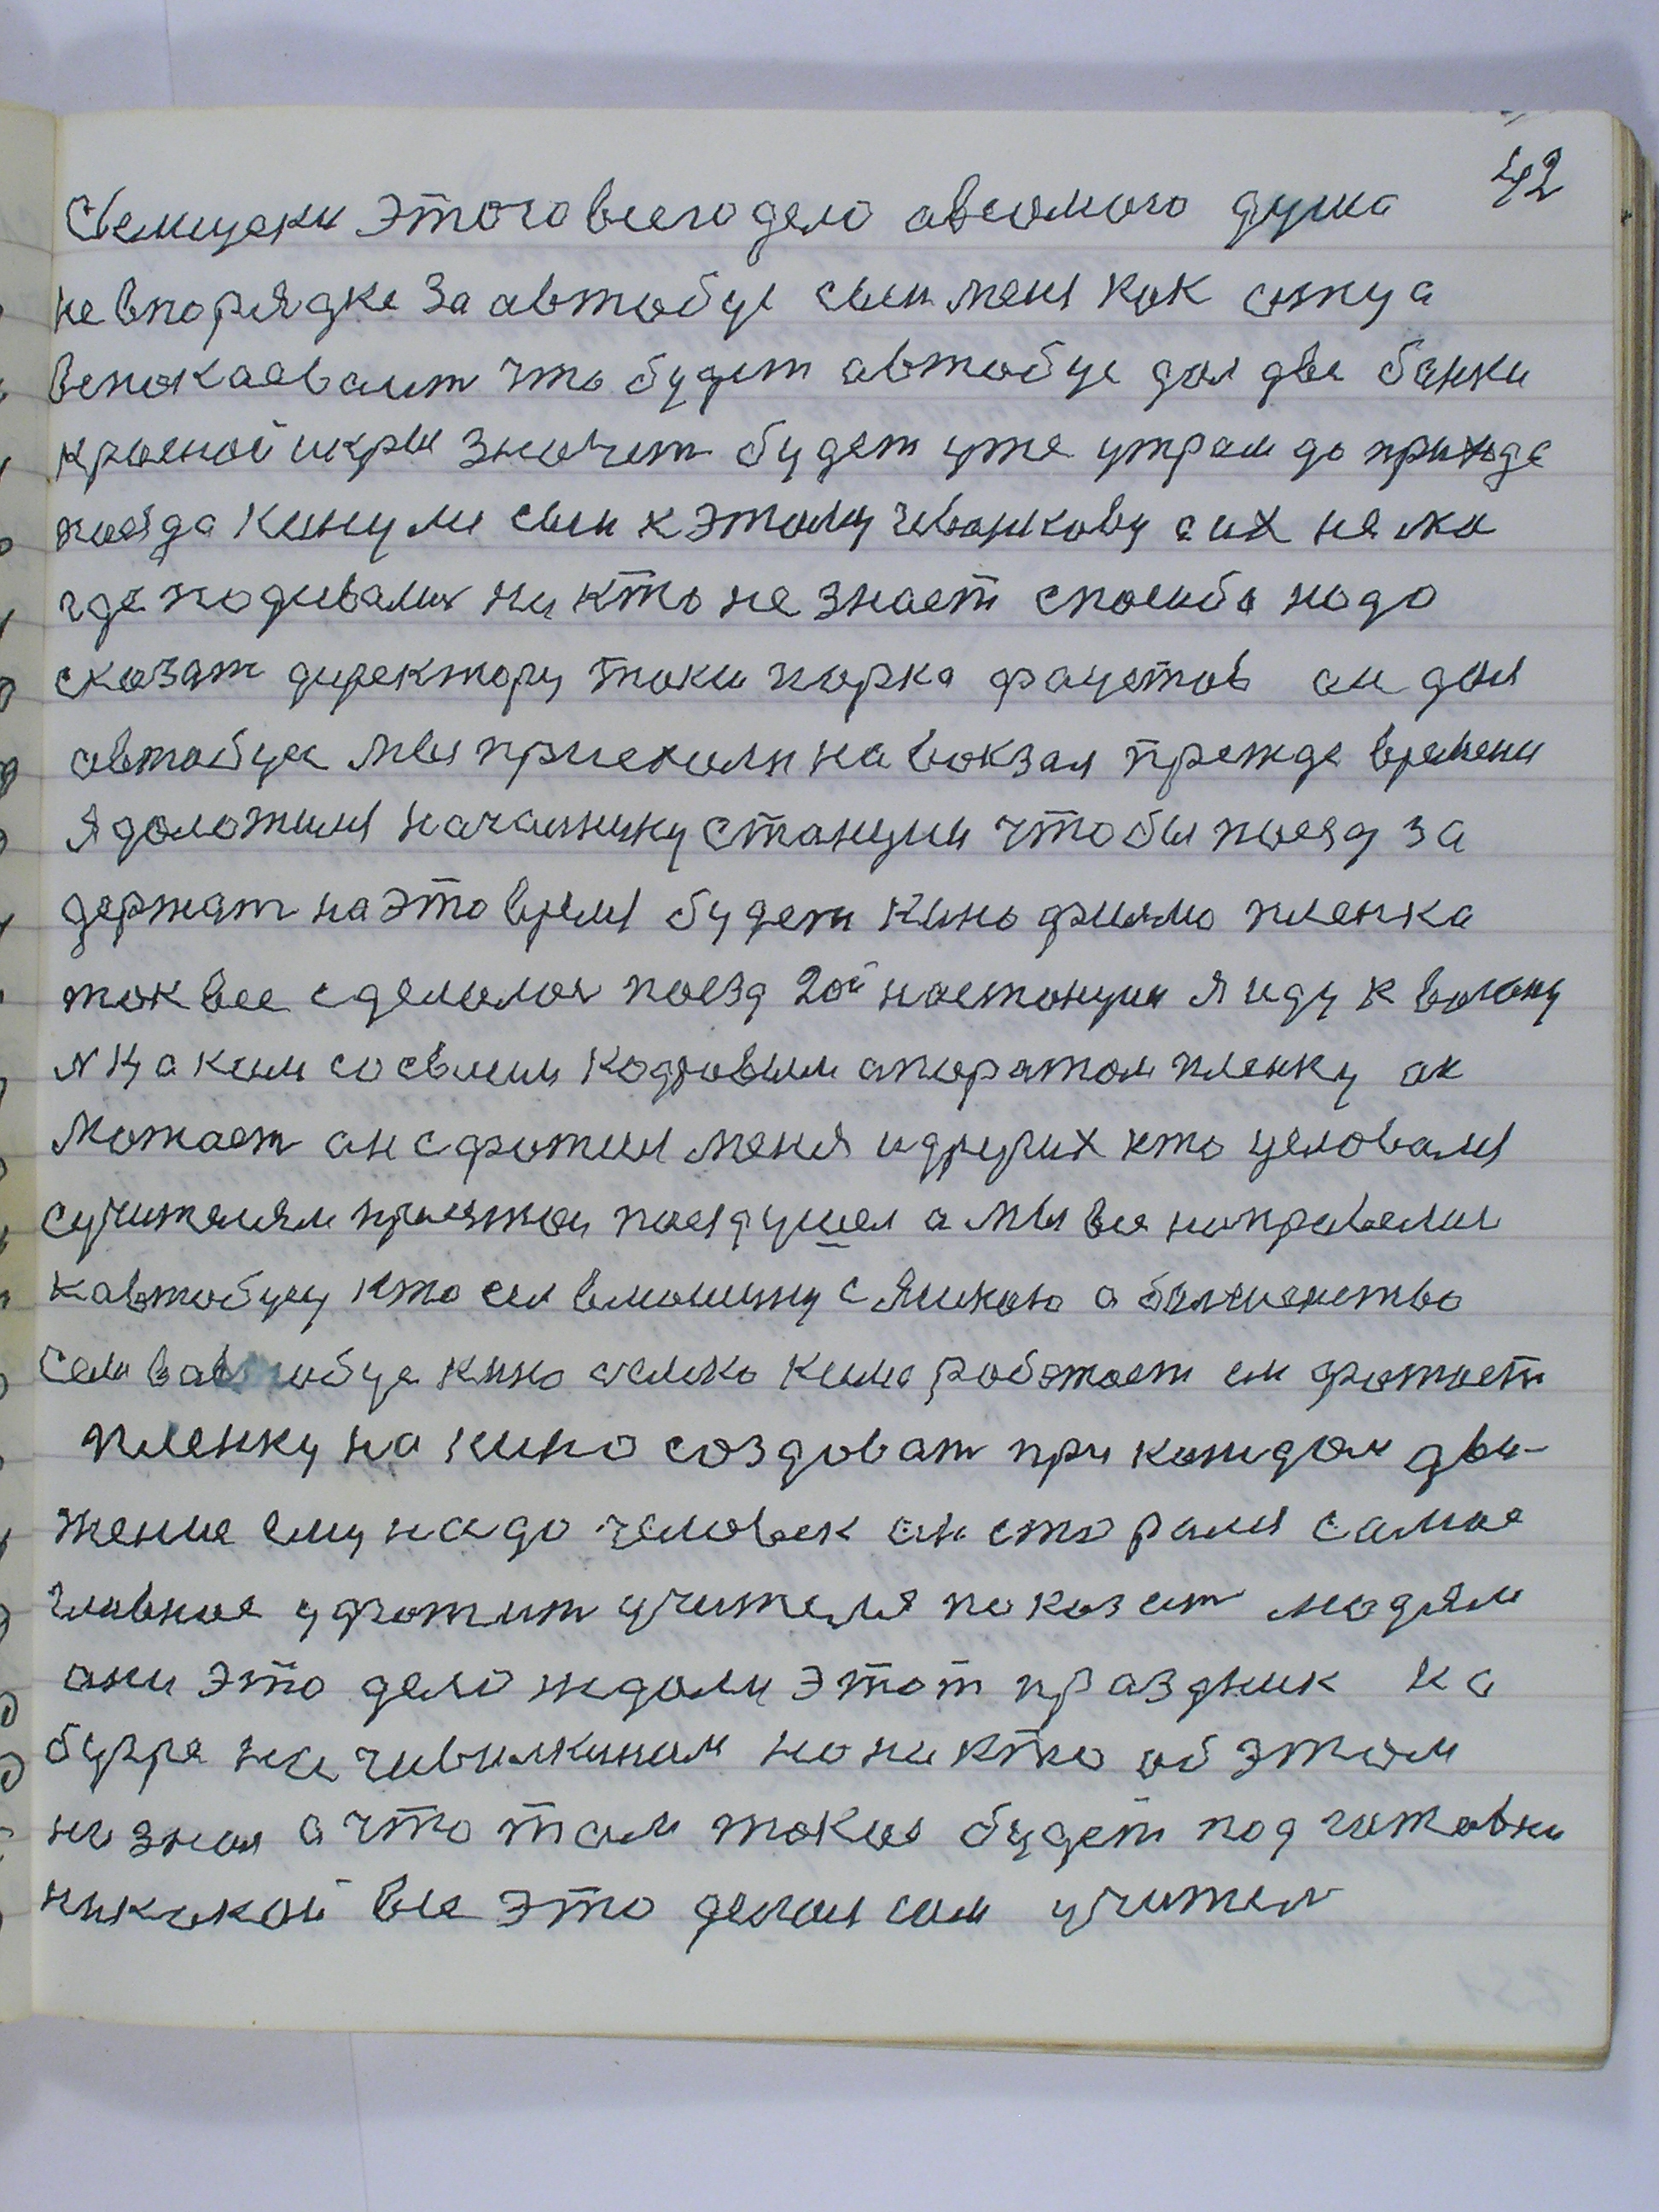 42
Съемщеки этого всего дело авсомого душа
не впорядке за автобус сын меня как отца
вспокаевает что будет автобус дал две банки
красной икры значет будет уже утрам до прихода
поезда кинули сын к этому чеванкову а их нема
где подевались ни кто не знает спосибо надо
сказат директору токи парка фаустов он дал
автобус мы приехали на вокзал прежде времени
Я доложил начальнику станции чтобы поезд за
держат на это время будет кино филмо пленка
так все сделалося поезд 20й на станции я иду к вогону
N 4 а ким со своим кодровым апоратом пленку ак
Мотает он сфотил меня и других кто целовался
с учителям приятно поезд ушел а мы все направелис
к автобусу кто сел в мошину с Яшкою а болшенство
сели в автобус кино сьемка кима работает ем фотает
пленку на кино создоват при кождом дви-
жение ему надо человек он старался самое
главное уфотит учителя показат людям
ани это дело ждали этот праздник на
бугре на чивилкиным но ни кто об этом
не знал а что там такое будет под готовки
никакой все это делал сам учител